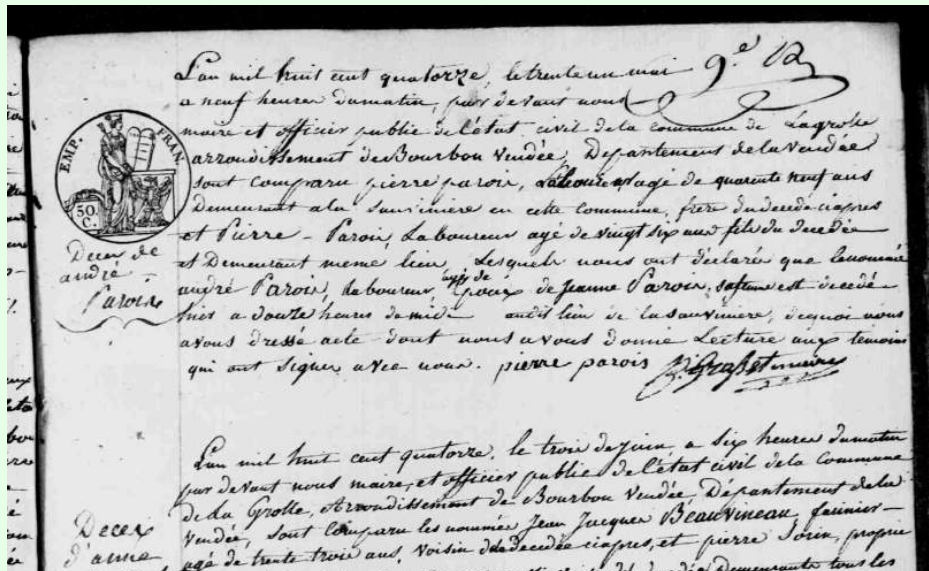 L'an mil huit cent quatorze, le trente un mai 9.e
a neuf heures du matin, par devant nous
maire et officier public de l'état civil de la commune de Lagrolle
arrondissement de Bourbon Vendée, Département de la Vendée
sont comparu pierre parois, agé de quarente neuf ans
Demeurant a la Sauviniere en cette commune, frere du decedé ciapres
et Pierre - Parois, Laboureur agé de vingt six ans fils du decedée
et Demeurant meme lieu Lesquels nous ont déclarée que le nommé
andré Parois, Laboureur agé de Epoux de Jeanne Parois, sa feme est decedé
hier a douze heures de midi audit lieu de la sauviniere, de quoi nous
avons dressé acte dont nous avons donné Lecture aux temoins
qui ont signer avec nous. pierre parois
EMP. FRAN.
50.
C.
Decès de
andré
Parois
L'an mil huit cent quatorze, le trois de juin a six heures du matin
par devant nous maire, et officier public de l'état civil de la Commune
de La Grolle, Arrondissement de Bourbon Vendée, Département de la
Vendée, sont comparu les nommée Jean Jacques Beauvineau fermier -
agé de trente trois ans, voisin de la decedée ciapres, et pierre Sorin, proprie
Demeurante tous les
Decex
d'anne